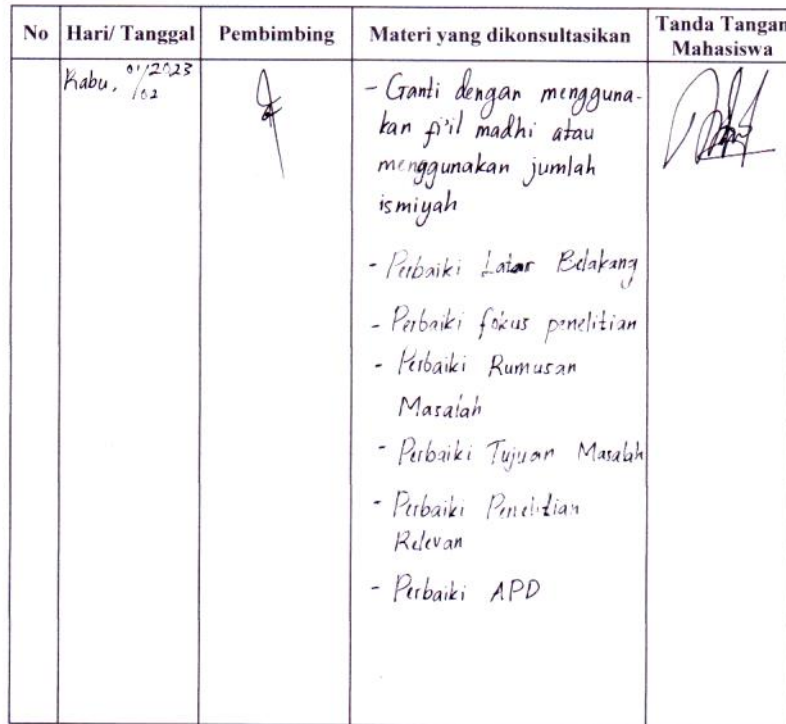 No Hari/ Tanggal Pembimbing Materi yang dikonsultasikan Tanda Tangan Mahasiswa
Rabu, 01/02 2023
- Ganti dengan mengguna-
kan fi'il madhi atau
menggunakan jumlah
ismiyah
- Perbaiki Latar Belakang
- Perbaiki fokus penelitian
- Perbaiki Rumusan
Masalah
- Perbaiki Tujuan Masalah
- Perbaiki Penelitian
Relevan
- Perbaiki APD